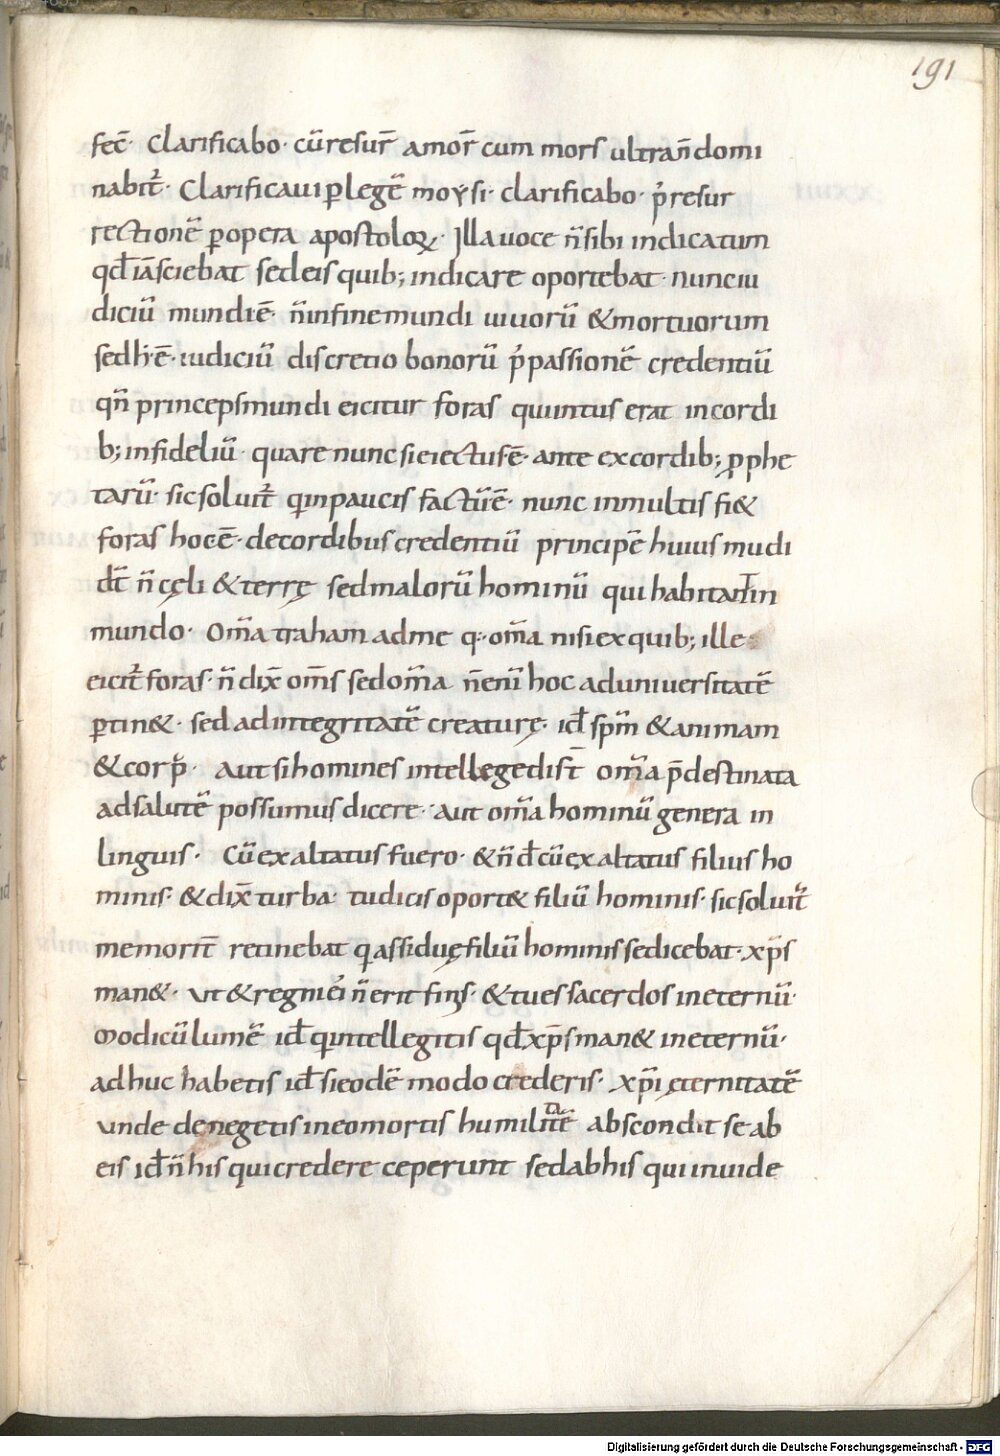 191
fec̄· Clarificabo· cū resur̄ amor̄ cum mors ultra n̄ domi
nabit᷒· Clarificaui ꝑ legē moẏsi· clarificabo· p᷒ resur
rectionē ꝑ opera apostoloꝝ· Illa uoce n̄ sibi indicatum
qđ iā sciebat sed eis quib; indicare oportebat· nunc iu
diciū mundi ē· n̄ in fine mundi uiuorū & mortuorum
sed h̄ ē· iudiciū discretio bonorū p᷒ passionē credentiū
qn̄ princeps mundi eicitur foras qui intus erat in cordi
b; infideliū· quare nunc si eiectus ē· ante ex cordib; ꝓphe
tarū· sic soluit᷒ q in paucis factū ē· nunc in multis fi&
foras hoc ē· de cordibus credentiū principē huius mudi
dt̄ n̄ cęli & terrę sed malorū hominū qui habitant in
mundo· Om̄a traham ad me q· om̄a nisi ex quib; ille
eicit᷒ foras· n̄ dix̄ om̄s sed om̄a n̄ eni hoc ad uniuersitatē
ꝑtin&· sed ad integritatē creaturę· id̄ spm̄ & animam
& corp᷒· aut si homines intellegedi st̄ om̄a p̄destinata
ad salutē possumus dicere· aut om̄a hominū genera in
linguis· Cū exaltatus fuero· & n̄ d̄ cū exaltatus filius ho
minis· & dix̄ turba· tu dicis oport& filiū hominis· sic soluit᷒
memorit᷒ retinebat q assiduę filiū hominis se dicebat· xp̄s
man&· ut & regni ei᷒ n̄ erit finis· & tu es sacerdos in eternū·
Modicū lumē id̄ q intellegitis qđ xp̄s man& in eternū·
adhuc habetis id̄ si eodē modo crederis· xp̄i ęternitatē
unde denegetis in eo mortis humilitatē abscondit se ab
eis id̄ n̄ his qui credere ceperunt sed ab his qui inuide
Digitalisierung gefördert durch die Deutsche Forschungsgemeinschaft - DFG